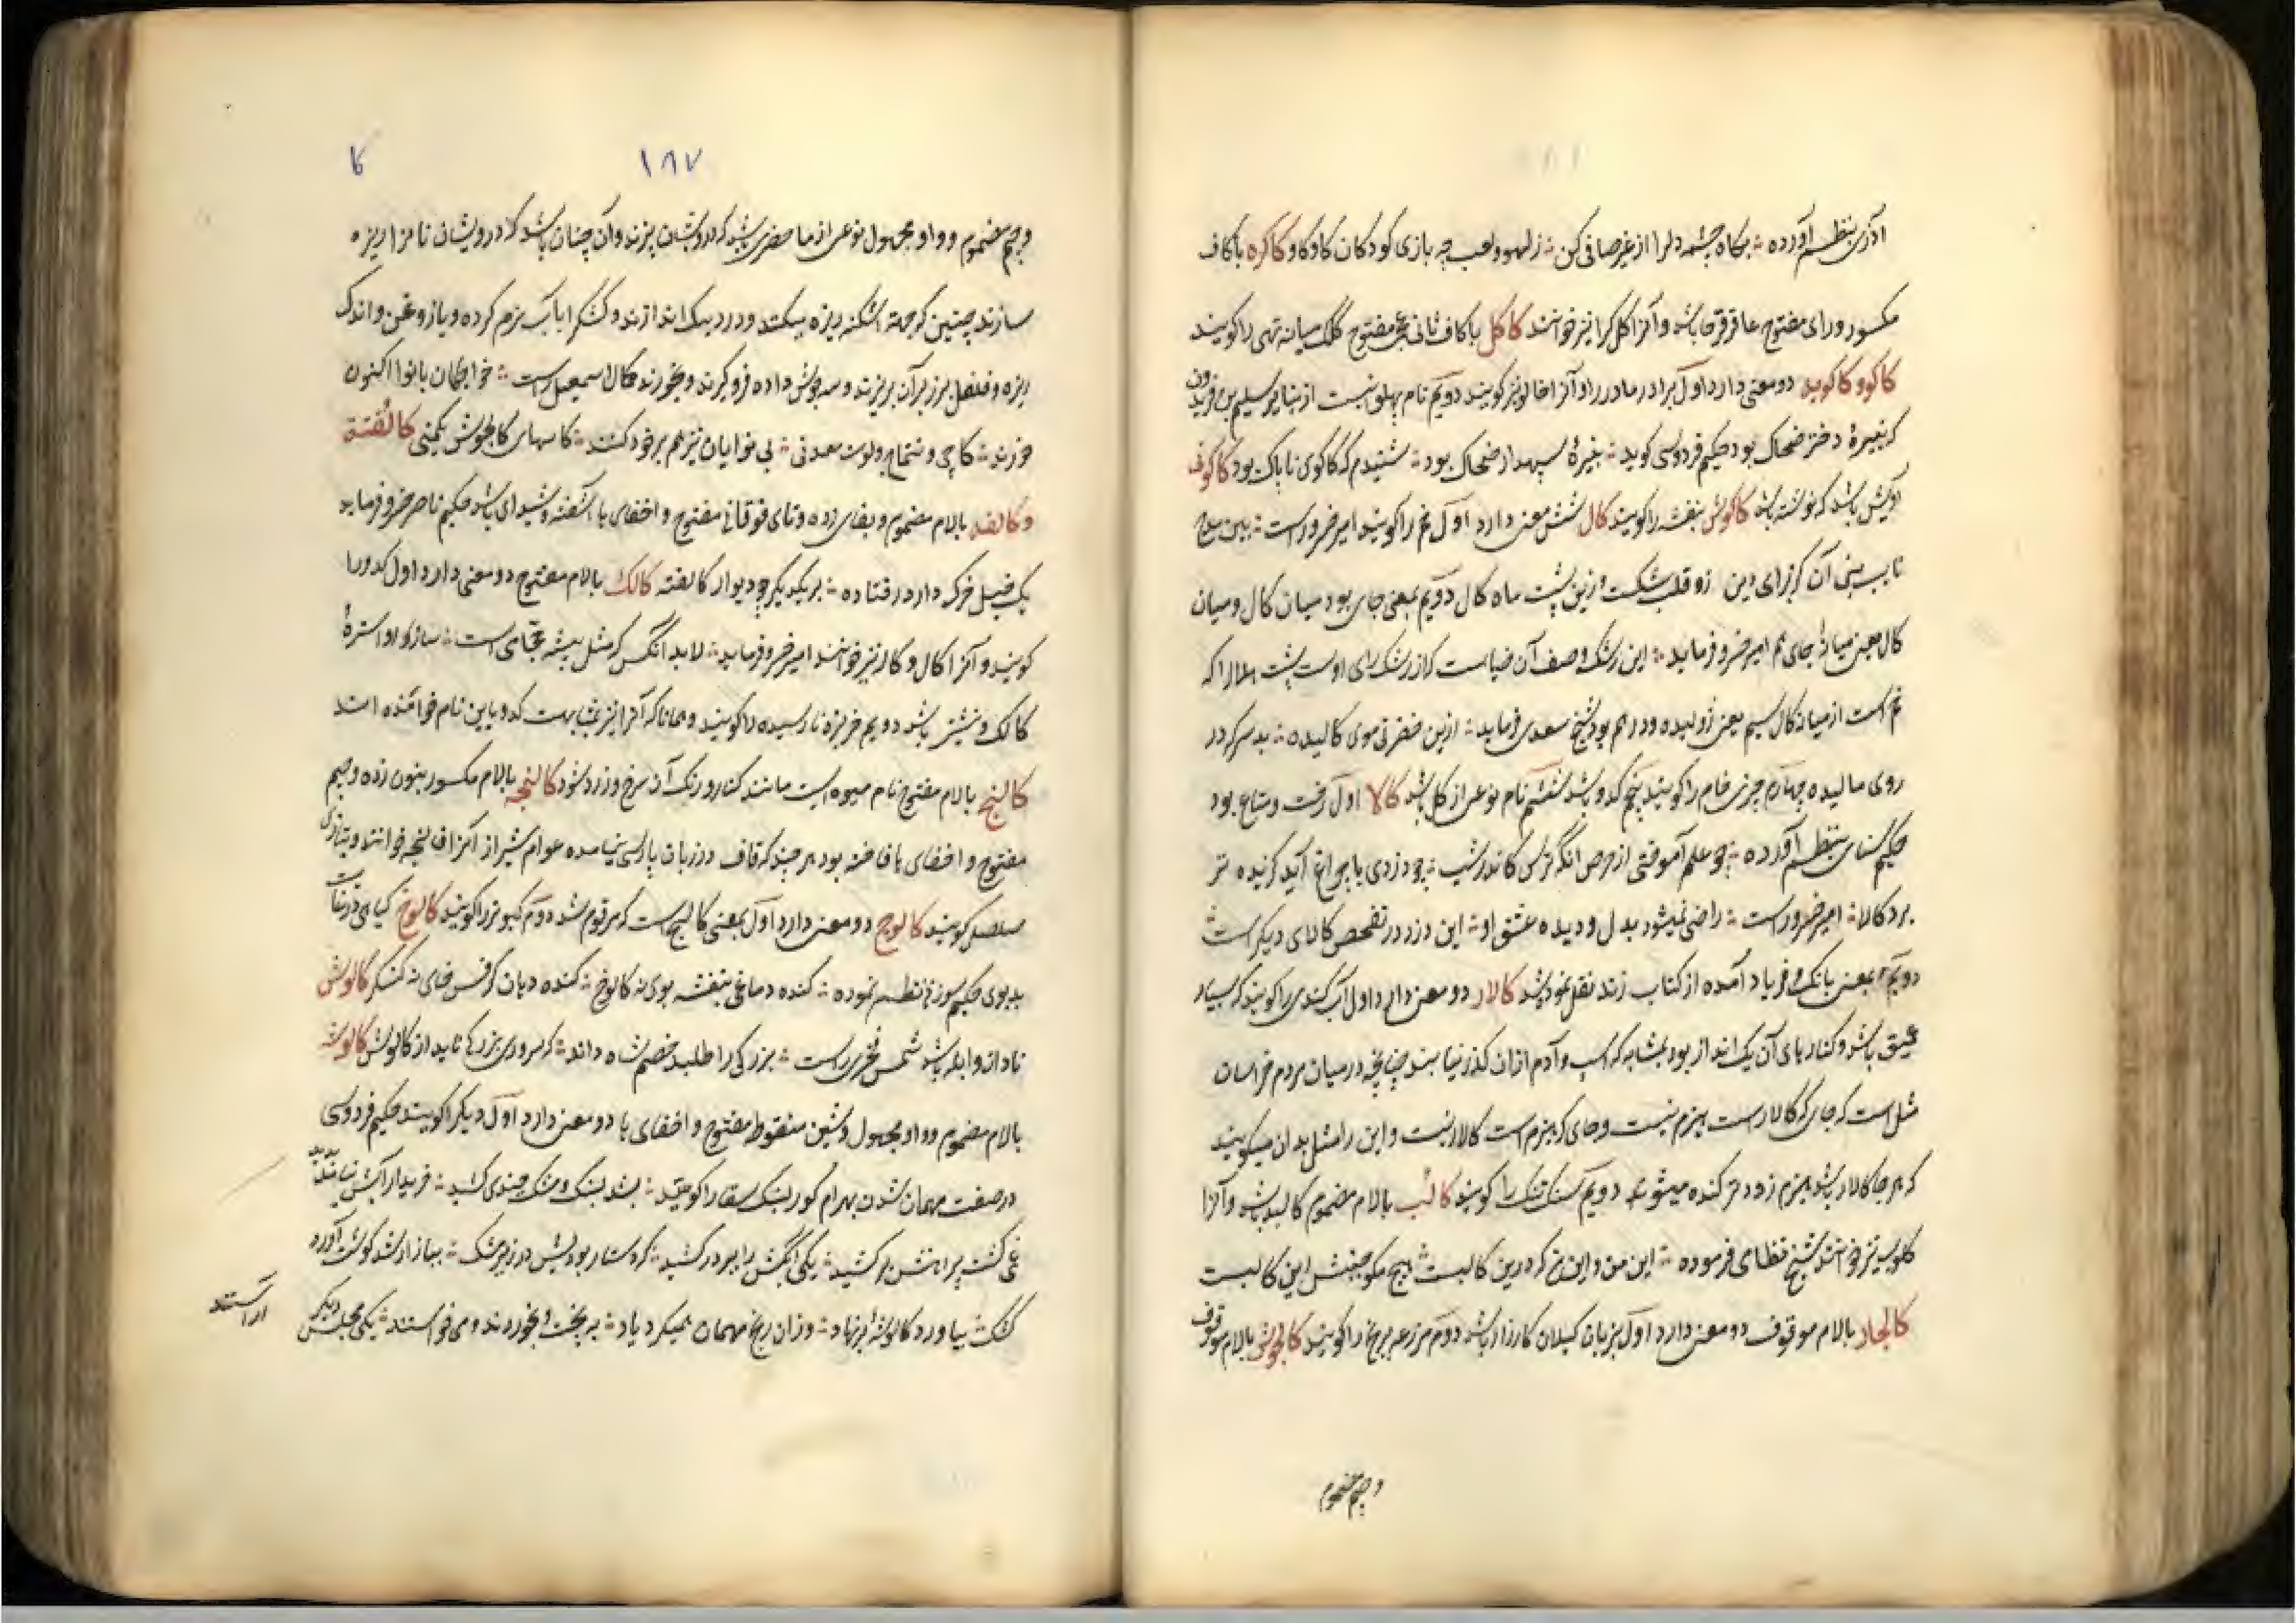 آذری بنظم آورده بگاه چشمه دلرا از غیر صافی کن ز لهو و لعب چه بازی کودکان کاوکاو کاکره باکاف
مکسور و رای مفتوح عاقرقرحا باشد و آنرا کلکرا نیز خوانند کاکل باکاف ثانی عجمی مفتوح کلک میانه تهی را کویند
کاکو و کاکوید دو معنی دارد اول برادر مادر را و آنرا خالو نیز کویند دویم نام پهلوانیست از بنایر سلیم بن فریدون
که نبیرهٔ دختر ضحاک بود حکیم فردوسی کوید نبیرهٔ سپهدار ضحاک بود شنیدم که کاکوی ناپاک بود کاکوف
باشد که نوشته شد کاکوش بنفشه را کویند کال شش معنی دارد اول خم را کویند امیر خسرو راست ببین
آن کز برای دین زو قلب شکست و زین پشت ماه کال دویم بمعنی جای بود میان کال و میان
کال یعنی میانهٔ جای هم امیر خسرو فرماید این رشک وصف آن ضیاست کز رشک رای اوست پشت هلال را که
خم است از میانه کال سیم یعنی ژولیده و درهم بود شیخ سعدی فرماید ازین خفرقی موی کالیده بد سرکه در
روی مالیده چهارم چیزی خام را کویند پنجم کدو باشد ششم نام نوعی از کل باشد کالا اول رخت و متاع بود
حکیم سنایی بنظم آورده چو علم آموختی از حرص انگه ترس کاندر شب چو دزدی با چراغ آید کزیده تر
برد کالا امیر خسرو راست راضی نمیشود بدل و دیده عشق او این دزد در تفحص کالای دیکر است
دویم بمعنی بانک و فریاد آمده از کتاب زند نقل نموده شد کالار دو معنی دارد اول آب کندی را کویند که بسیار
عمیق باشد و کنارهای آن یک انداز بود بمثابه که اسپ و آدم ازان کذر نیابند چنانچه در میان مردم خراسان
مثل است که جای که کالار است هیزم نیست و جای که هیزم است کالار نیست و این را مثل بدان میکویند
که هر جا کالار باشد هیزم زود تر کنده میشود دویم سنک تنک را کویند کالب بالام مضموم کالبد باشد و آنرا
کلوب نیز خوانند شیخ نظامی فرموده این من و این من که درین کالبست هیچ مکو جنبش این کالبست
کالجار بالام موقوف دو معنی دارد اول بزبان کیلان کارزار باشد دوم مزرعه برنج را کویند کالجوش بالام موقوف
و جیم مضموم
کا
۱۸۷
و جیم مضموم و واو مجهول نوعی از ماحضری باشد که درویشان پزند و آن چنان باشد که درویشان نانرا ریزه
سازند چنین که جهة اشکنه ریزه میکنند و در دیک اندازند و کشکرا باب نرم کرده و پیاز و روغن و اندک
زیره و فلفل بر زبر آن بریزند و سه جوش داده فرو کیرند و بخورند کمال اسمعیل راست خواجکان بانوا اکنون
خورند کاچی و تتماج ولوت معدنی بی نوایان نیز هم بر خود کنند کاسهای کالجوش یکمنی کالفته
و کالفته بالام مضموم و بفای زده و تای فوقانی مفتوح و اخفای ها آشفته و شیدای باشد حکیم ناصر خسرو فرماید
یک فیل خرک دارد رفتاده بر یکدیکر چو دیوار کالفته کالک بالام مفتوح دو معنی دارد اول کدو را
کویند و آنرا کال و کالر نیز خوانند امیر خسرو فرماید لابد انکس که مثل پیشه حجامی است ساز او استرهٔ
کالک و نیشتر باشد دویم خربزهٔ نارسیده را کویند و همانا که آنرا نیز بمشابهت کدو باین نام خوانده اند
کالنج بالام مفتوح نام میوه ایست مانند کنار و رنک آن سرخ و زرد شود کالنجه بالام مکسور بنون زده و جیم
مفتوح و اخفای ها فاخته بود هر چند که قاف در زبان پارسی نیامده عوام شیراز آنرا قالنجه خوانند و بتازی
صلصل کویند کالوج دو معنی دارد اول بمعنی کالیج است که مرقوم شد دوم کبوتر را کویند کالوخ کیاهی در نبات
بدبوی حکیم سوزنی نظم نموده کنده دماغی بنفشه بوی نه کالوخ کنده دهان کرفس خای نه کنکر کالوش
نادان و ابله باشد شمس فخری راست بزرکی را طلبد خصم شاه داند که سروری بزرکی ناید از کالوش کالوشه
بالام مضموم و واو مجهول و شین منقوطه مفتوح و اخفای ها دو معنی دارد اول دیک را کویند حکیم فردوسی
در صفت مهمان شدن بهرام کور لنبک سقا را کویند بشد لنبک و مشک چندی کشید خریدار آبش نیامد پدید
غمی کشت پیراهنش بر کشید یکی آبکش را ببر در کشید که دستار بودیش در زیر مشک ببازار شد کوشت آورد
کشک بیاورد کالوشه بر نهاد وزان رنج مهمان همیکرد یاد بپخت و بخوردند و می خواستند یکی مجلس دیکر
اراستند